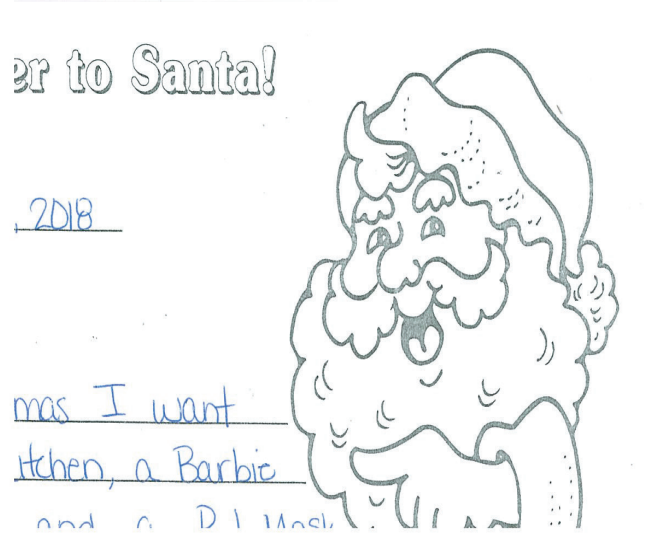 er to Santa!
, 2018
mas I want
itchen, a Barbie
and a PJ Mask